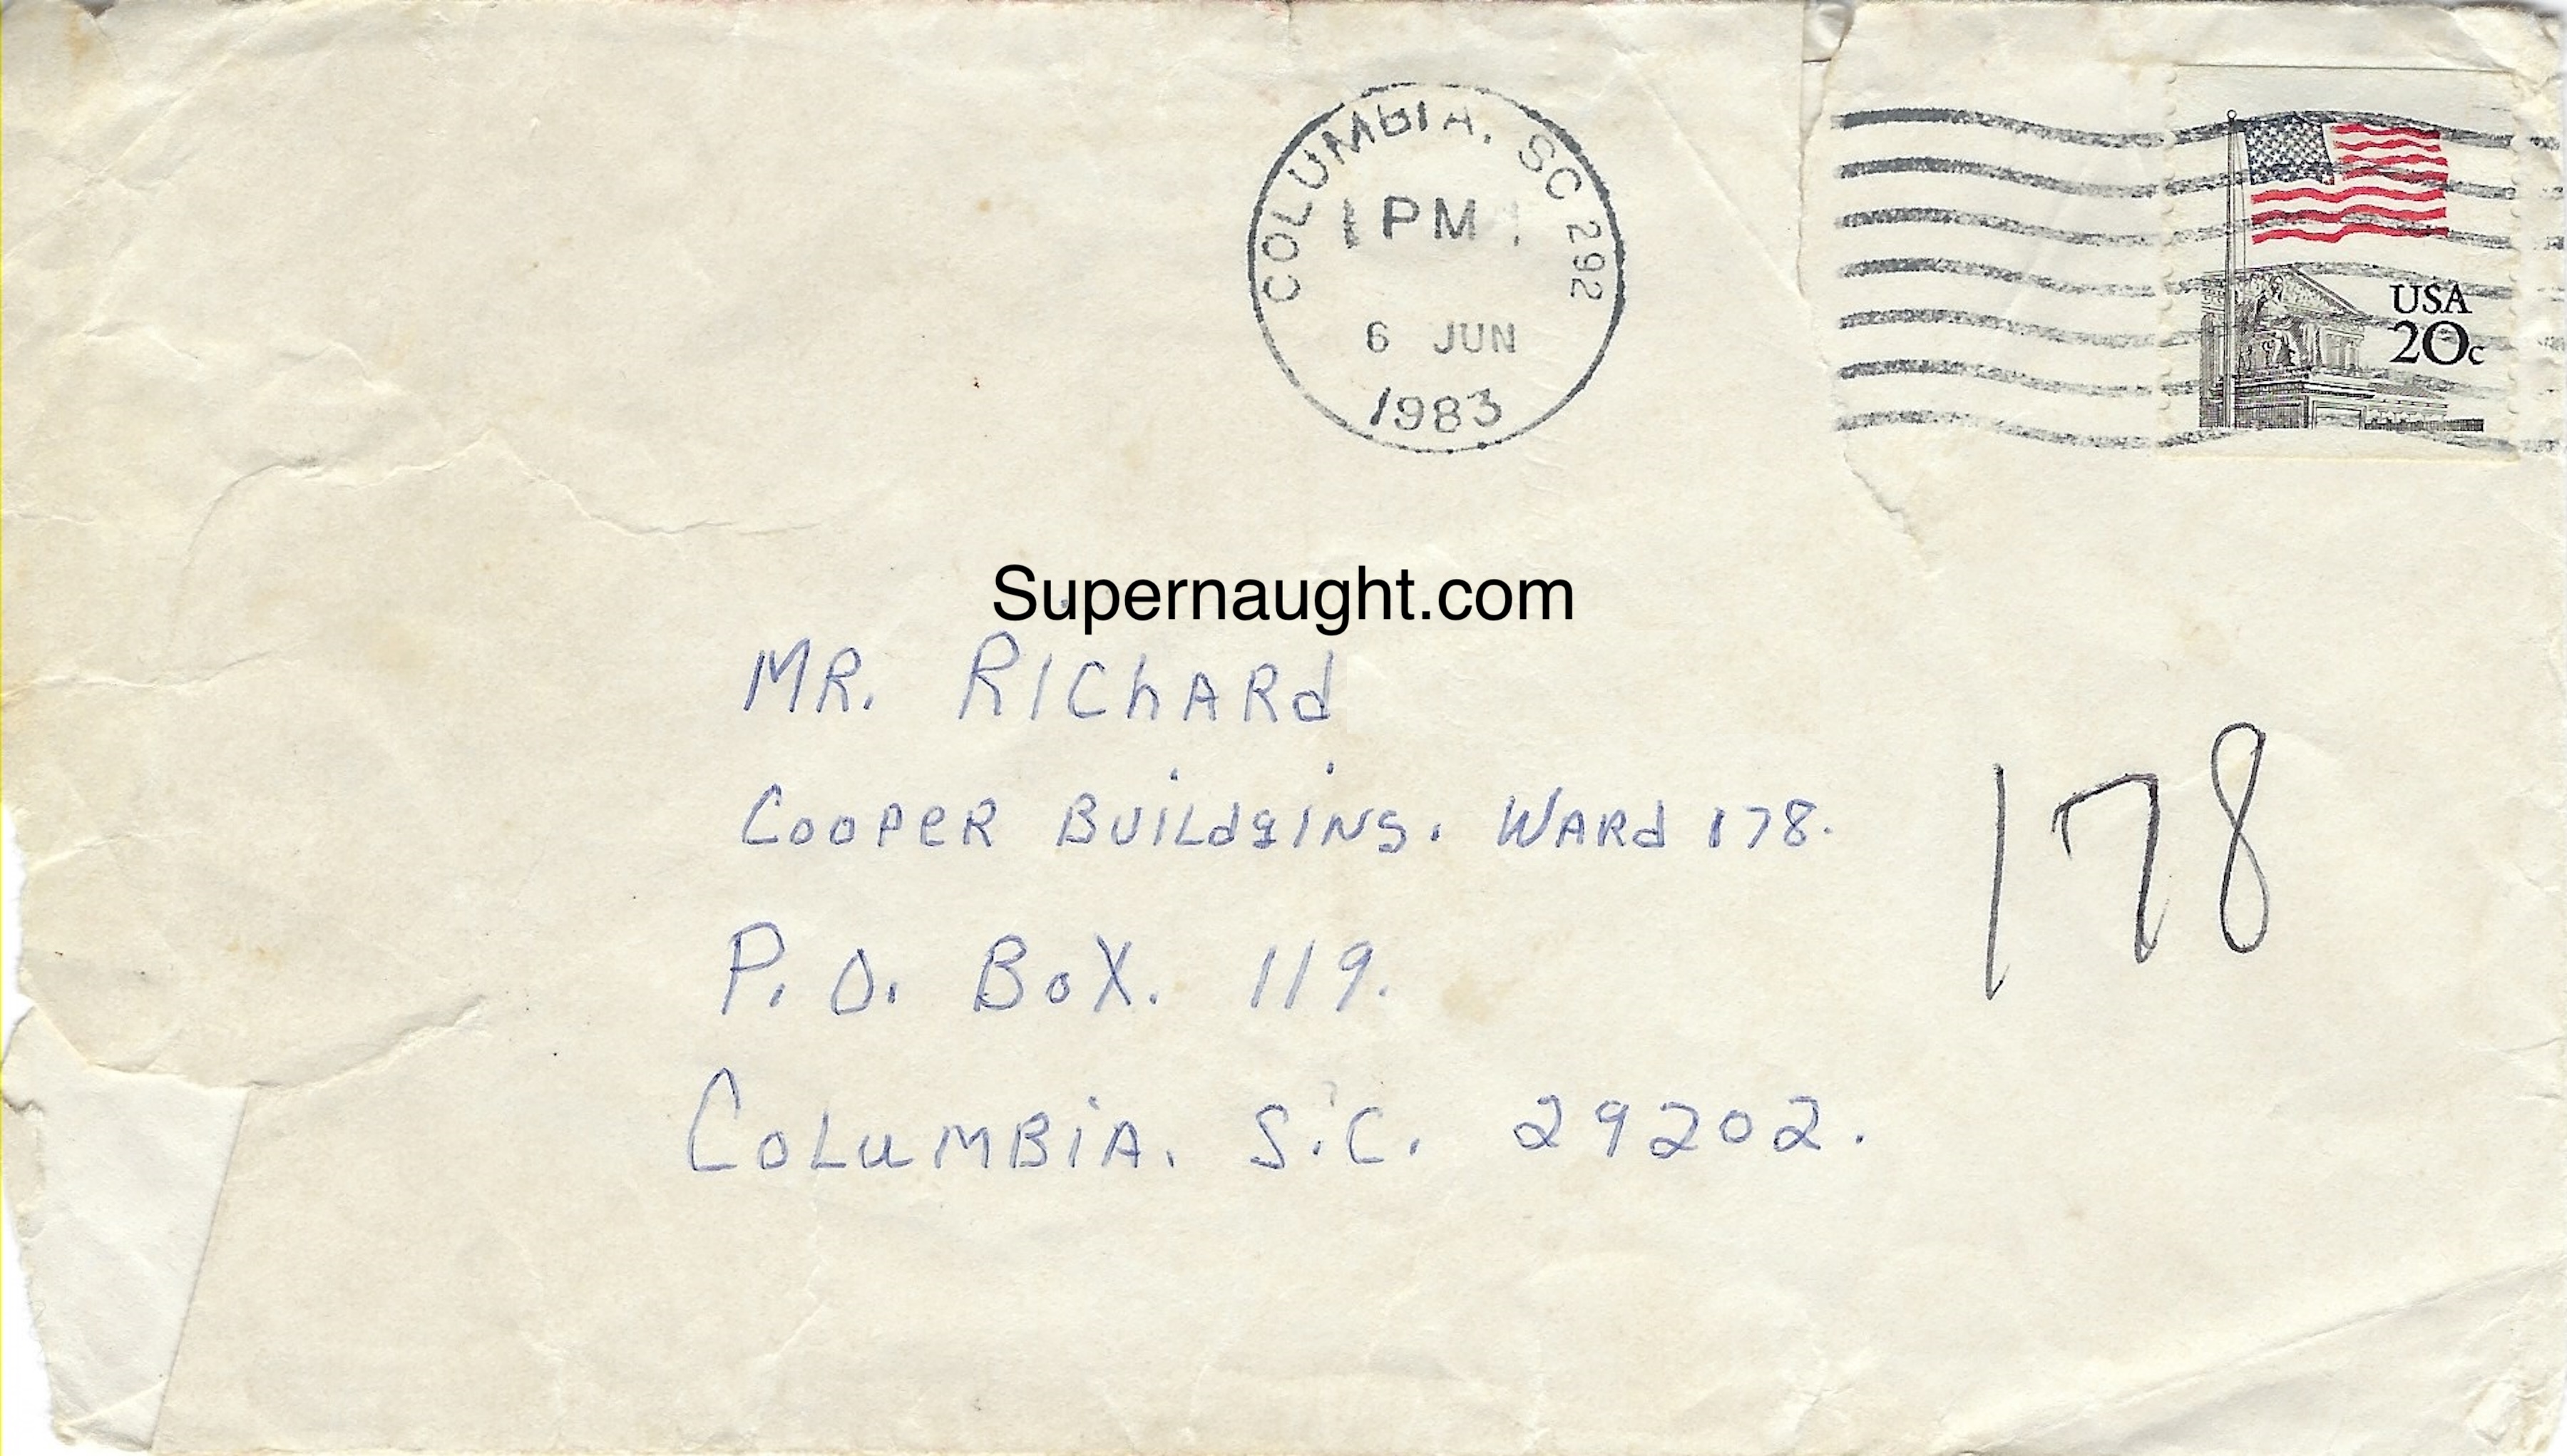 COLUMBIA, SC 292
1 PM
6 JUN
1983
USA
20c
Supernaught.com
MR. RIChARd
COOPeR BUiLdgiNg. WARd 178.
178
P. O. BoX. 119.
CoLuMBiA. S.C. 29202.